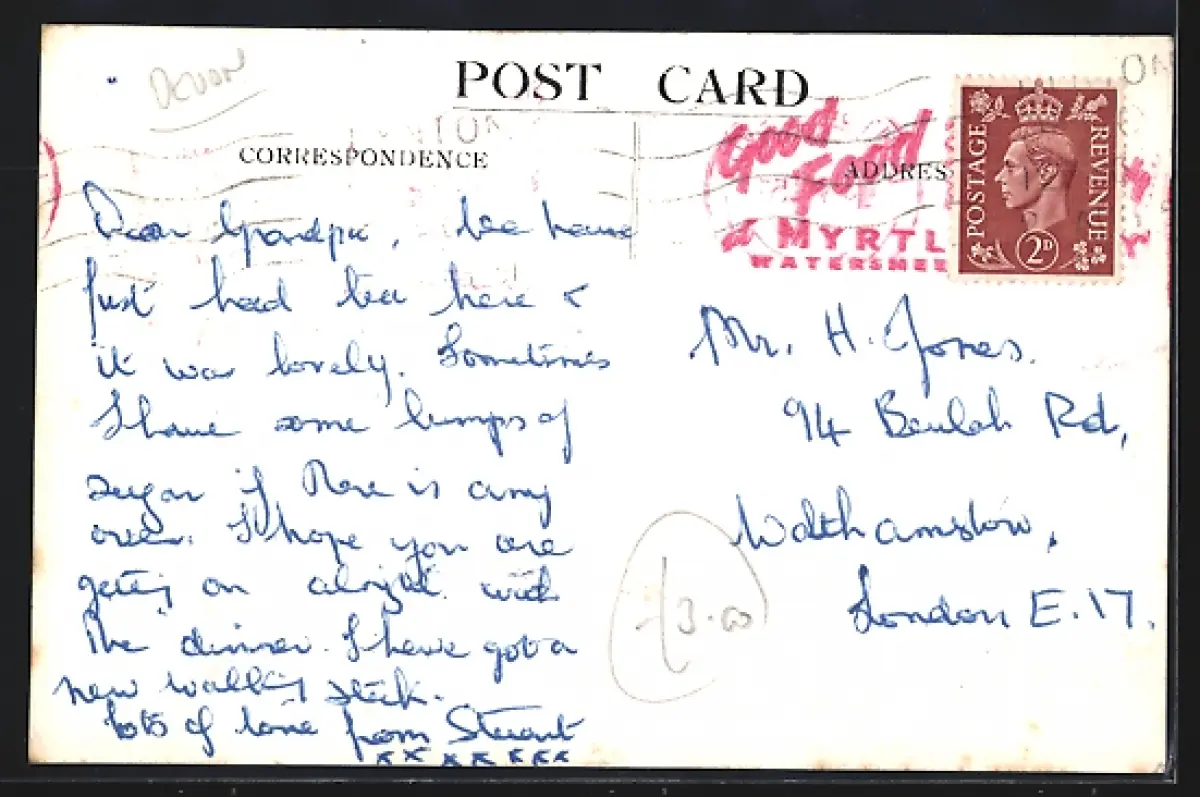 DEVON
POST CARD
CORRESPONDENCE
ADDRES
Good
Food
at MYRTL
WATERSMEE
POSTAGE
REVENUE
2D
Dear Grandpa, We have
just had tea here &
it was lovely. Sometimes
I have some lumps of
sugar if there is any
over. I hope you are
getting on alright with
the dinner. I have got a
new walking stick.
lots of love from Stuart
x x x x x x x
Mr. H. Jones.
94 Beulah Rd,
Walthamstow,
London E.17.
£3.00